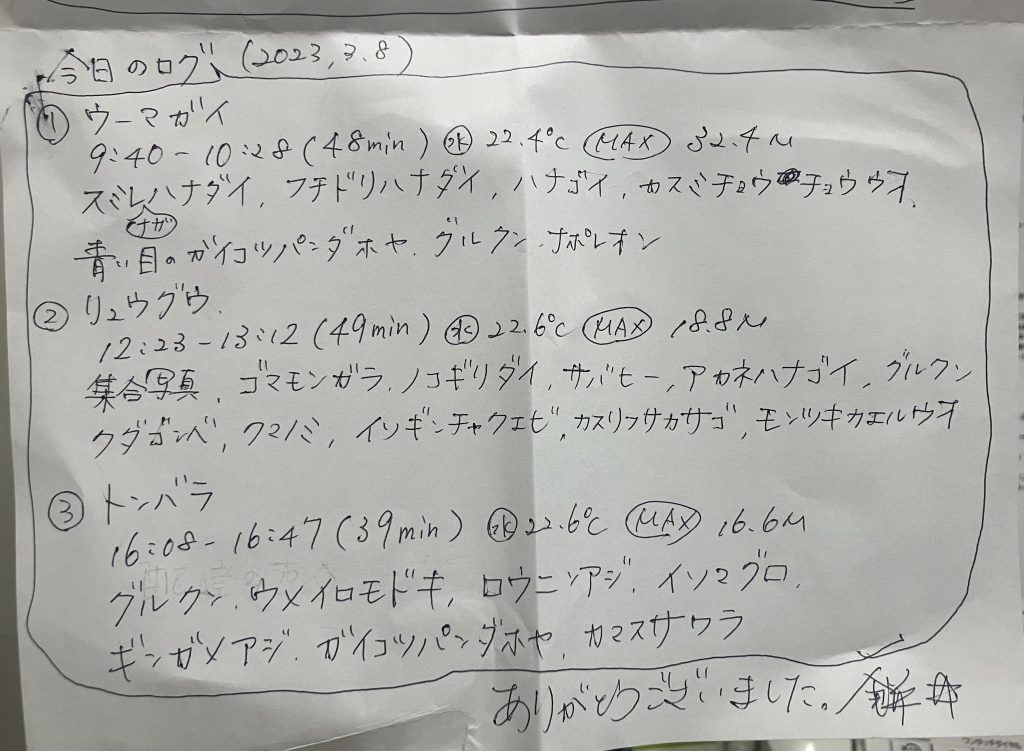 今日のログ (2023,3.8)
① ウーマガイ
9:40-10:28 (48min) 水 22.4℃ MAX 32.4M
スミレナガハナダイ, フチドリハナダイ, ハナゴイ, カスミチョウチョウウオ,
青い目のガイコツパンダホヤ. グルクン. ナポレオン
② リュウグウ.
12:23-13:12 (49min) 水 22.6℃ MAX 18.8M
集合写真, ゴマモンガラ, ノコギリダイ, サバヒー, アカネハナゴイ, グルクン
クダゴンベ, クマノミ, イソギンチャクエビ, カスリフサカサゴ, モンツキカエルウオ
③ トンバラ
16:08-16:47 (39min) 水 22.6℃ MAX 16.6M
グルクン. ウメイロモドキ, ロウニンアジ. イソマグロ.
ギンガメアジ. ガイコツパンダホヤ, カマスサワラ
ありがとうございました。